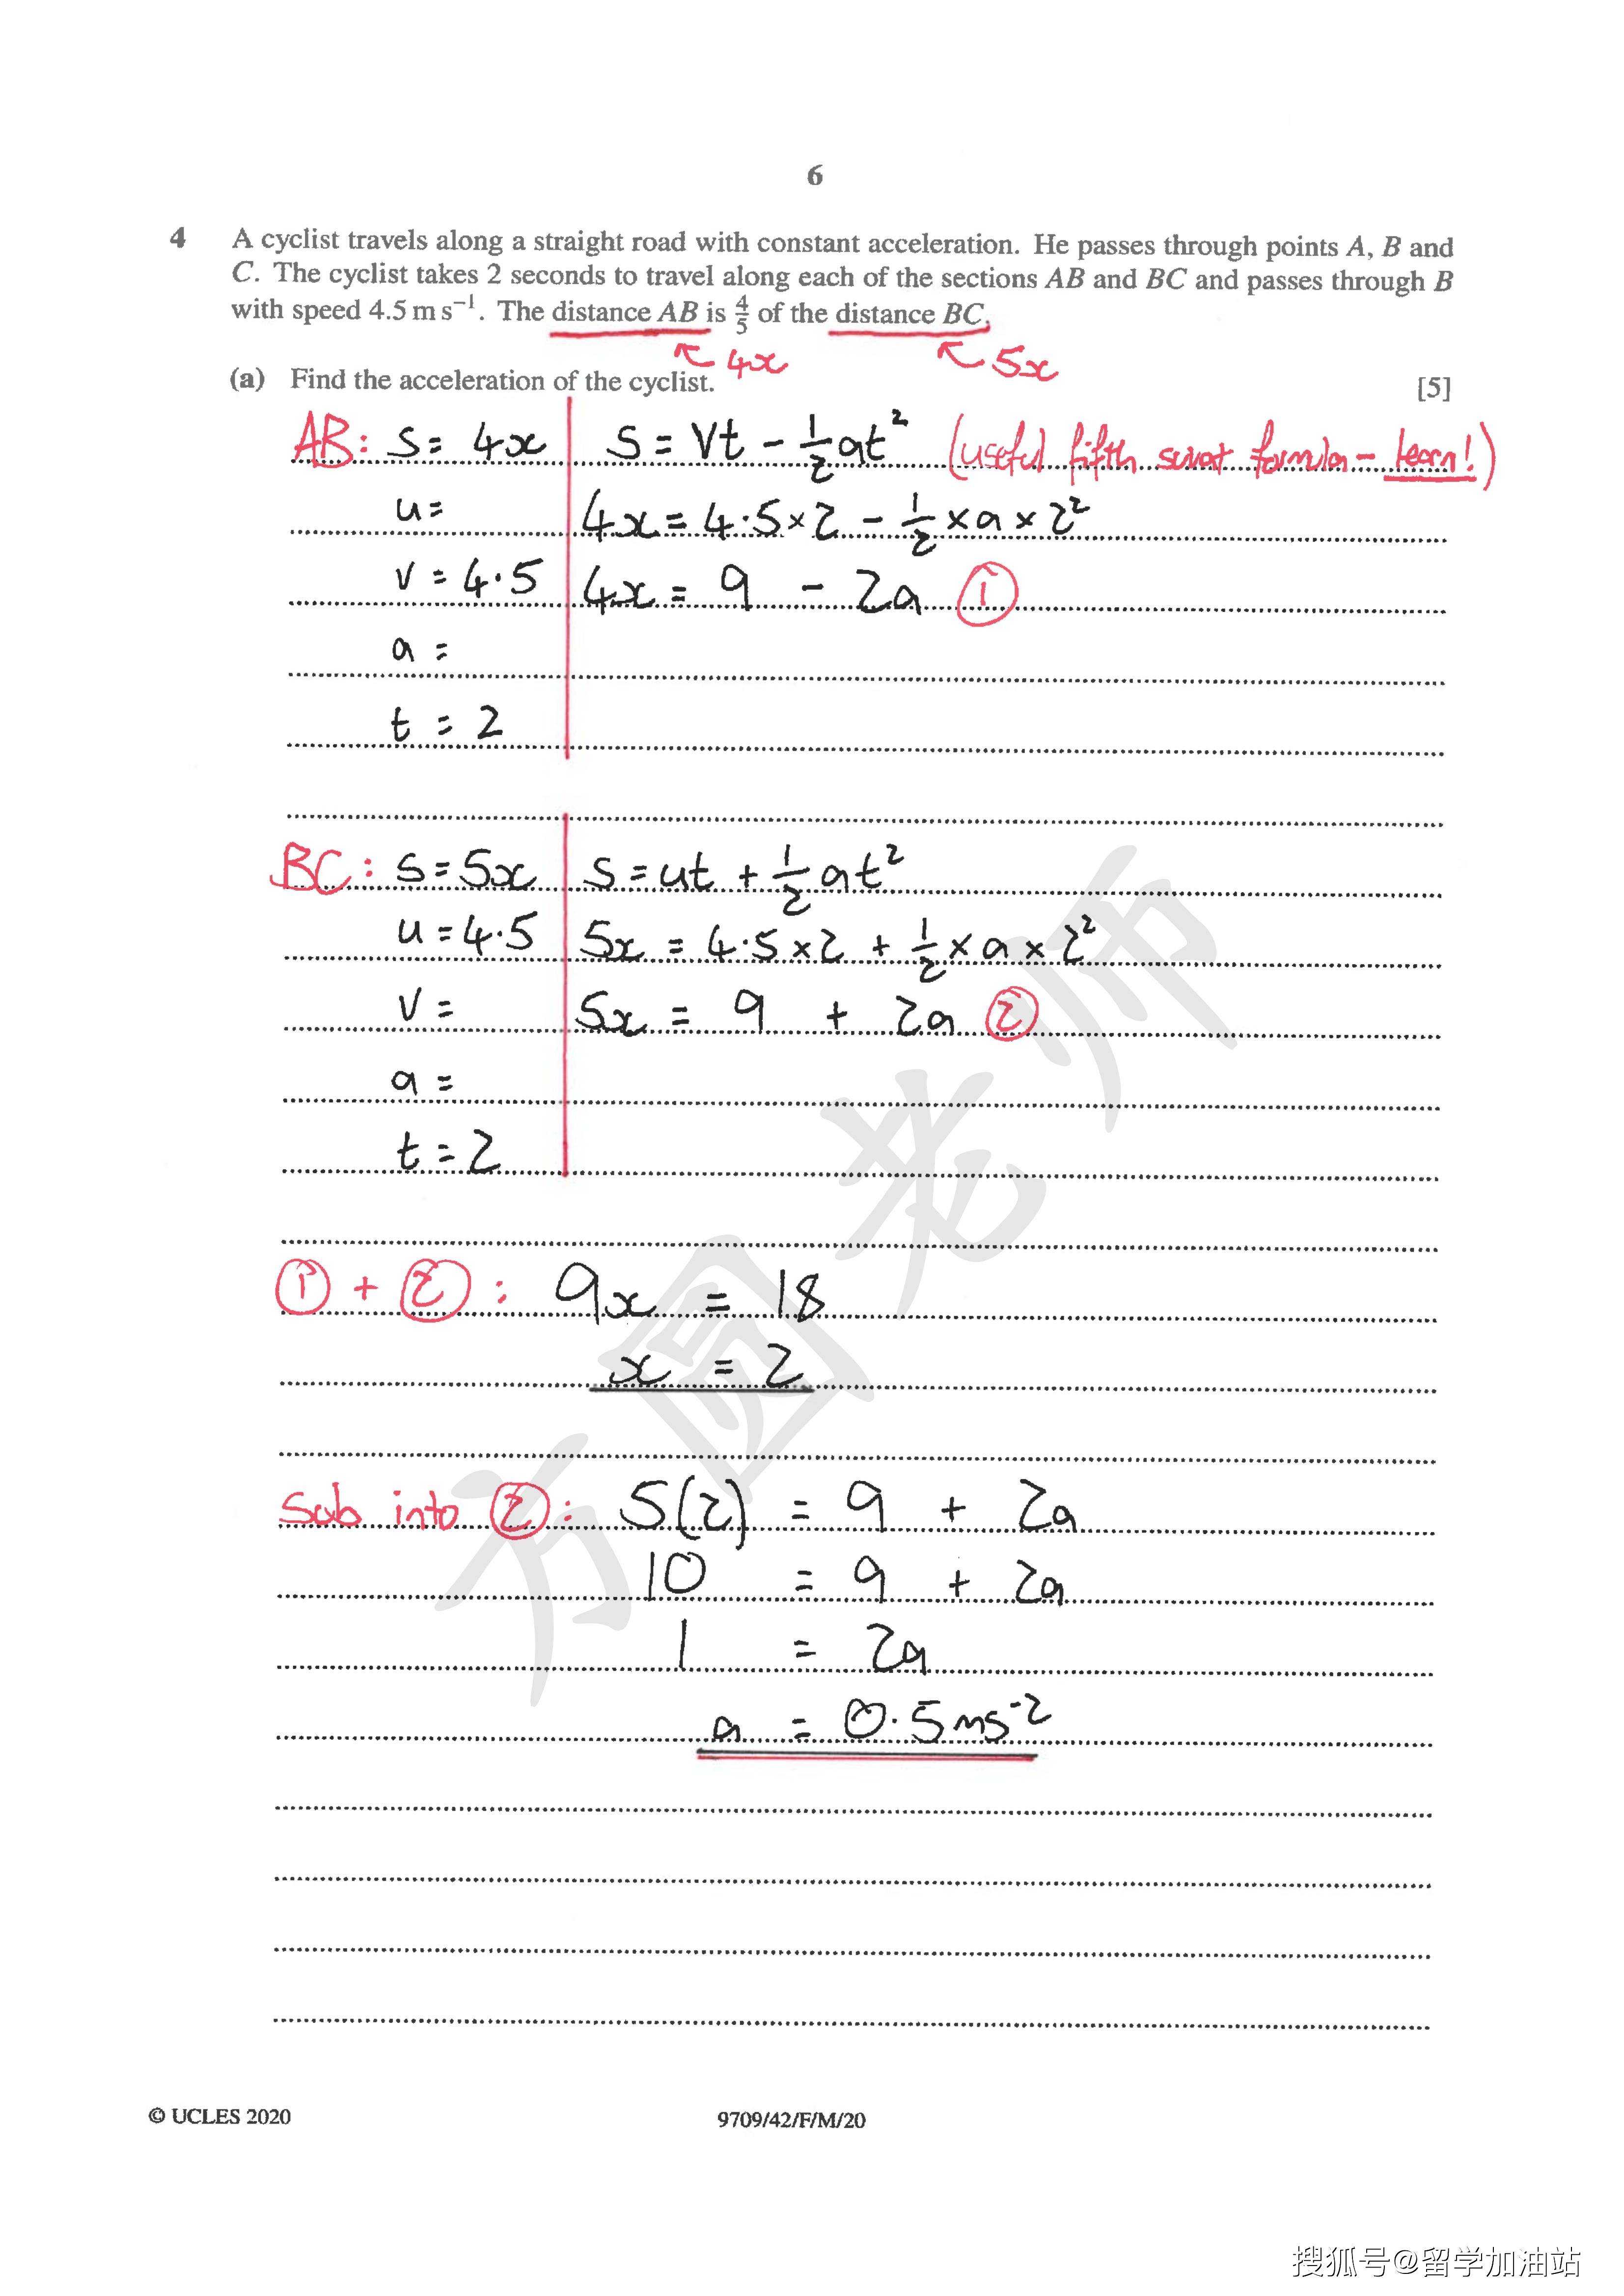 6
4 A cyclist travels along a straight road with constant acceleration. He passes through points A, B and
C. The cyclist takes 2 seconds to travel along each of the sections AB and BC and passes through B
with speed 4.5 m s⁻¹. The distance AB is 4/5 of the distance BC.
↖ 4x ↖ 5x
(a) Find the acceleration of the cyclist. [5]
AB: s = 4x s = vt - 1/2 at² (useful fifth suvat formula - learn!)
u = 4x = 4.5 × 2 - 1/2 × a × 2²
v = 4.5 4x = 9 - 2a ①
a =
t = 2
BC: s = 5x s = ut + 1/2 at²
u = 4.5 5x = 4.5 × 2 + 1/2 × a × 2²
v = 5x = 9 + 2a ②
a =
t = 2
① + ② : 9x = 18
x = 2
Sub into ② : 5(2) = 9 + 2a
10 = 9 + 2a
1 = 2a
a = 0.5 ms⁻²
方圆老师
© UCLES 2020 9709/42/F/M/20
搜狐号@留学加油站